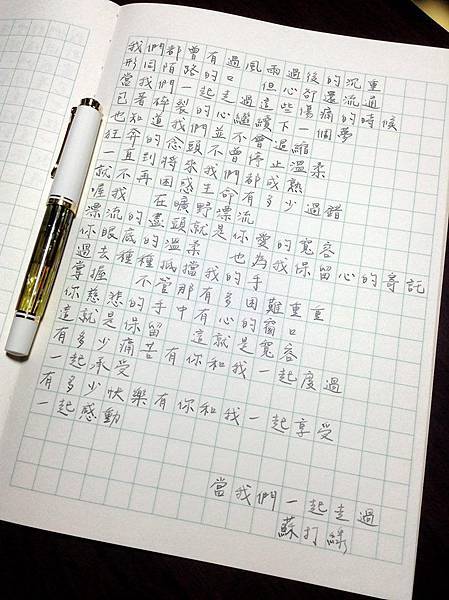 我們都曾有過風雨過後的沉重
形同陌路的口 但心卻還流通
當我們一起走過這些傷痛的時候
包著碎裂的心繼續下一個夢
也知道我們並不會退縮
狂奔的念頭不曾停止溫柔
一直到將來我們都成熟
就不再困惑生命有多少過錯
喔我 在曠野漂流
漂流的盡頭就是你愛的寬容
你眼底的溫柔 也為我保留心的寄託
過去種種抵擋我的手
掌握 不管那有多困難重重
你慈悲的手中有心的窗口
這就是保留 這就是寬容
有多少痛苦有你和我一起度過
一起承受
有多少快樂有你和我一起享受
一起感動
當我們一起走過
蘇打綠